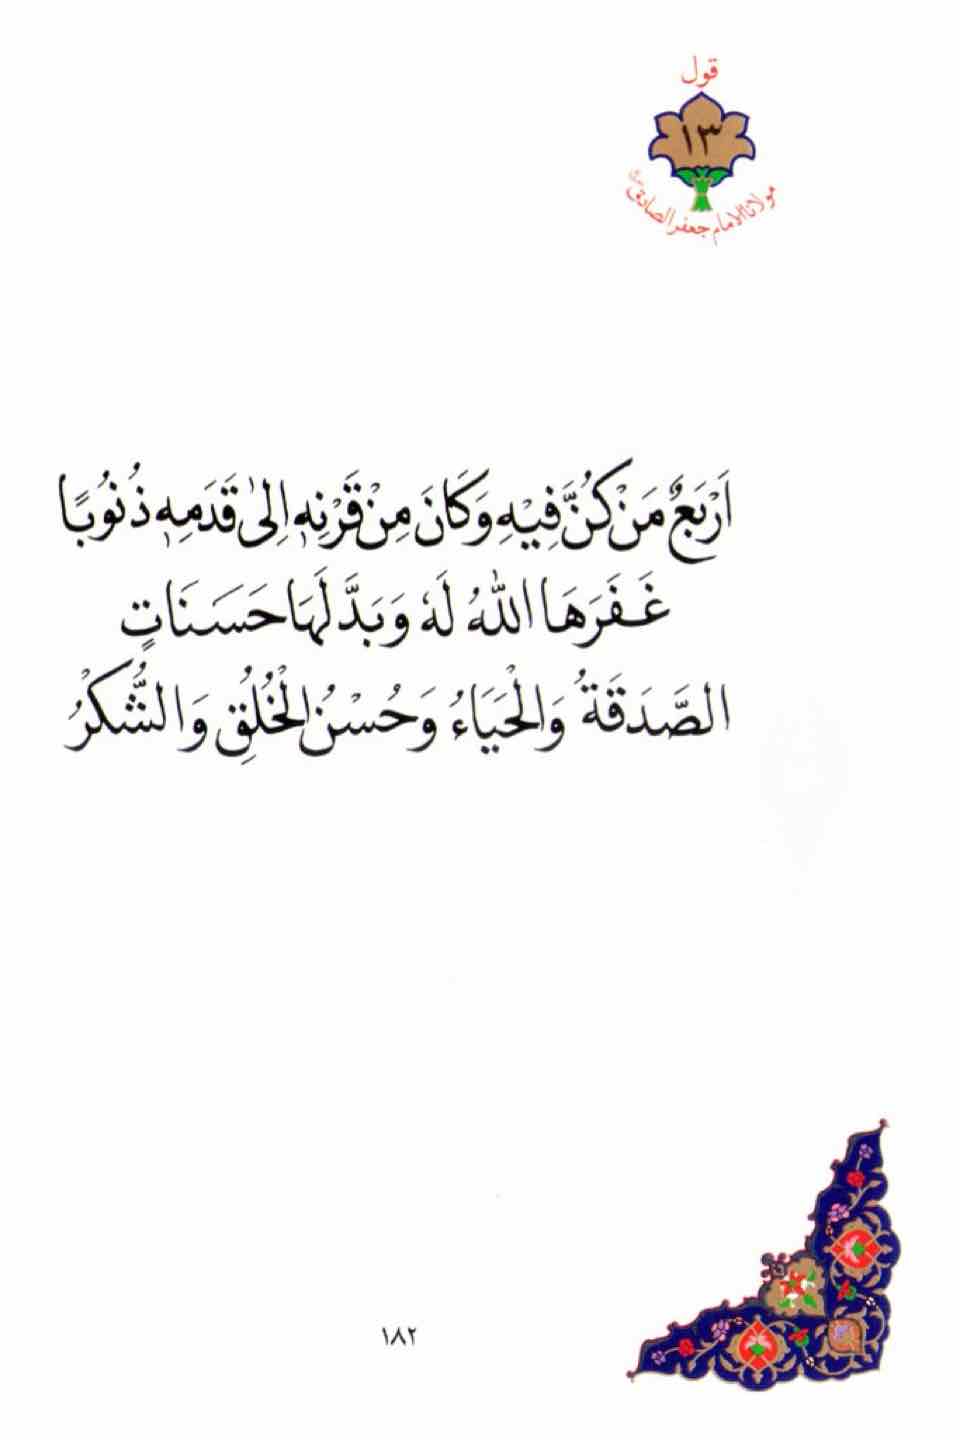 قول
١٣
مولانا الامام جعفر الصادق
اَرْبَعٌ مَنْ كُنَّ فِيْهِ وَكَانَ مِنْ قَرْنِهٖ اِلىٰ قَدَمِهٖ ذُنُوْبًا
غَفَرَهَا اللّٰهُ لَهٗ وَبَدَّلَهَا حَسَنَاتٍ
الصَّدَقَةُ وَالْحَيَاءُ وَحُسْنُ الْخُلُقِ وَالشُّكْرُ
١٨٢